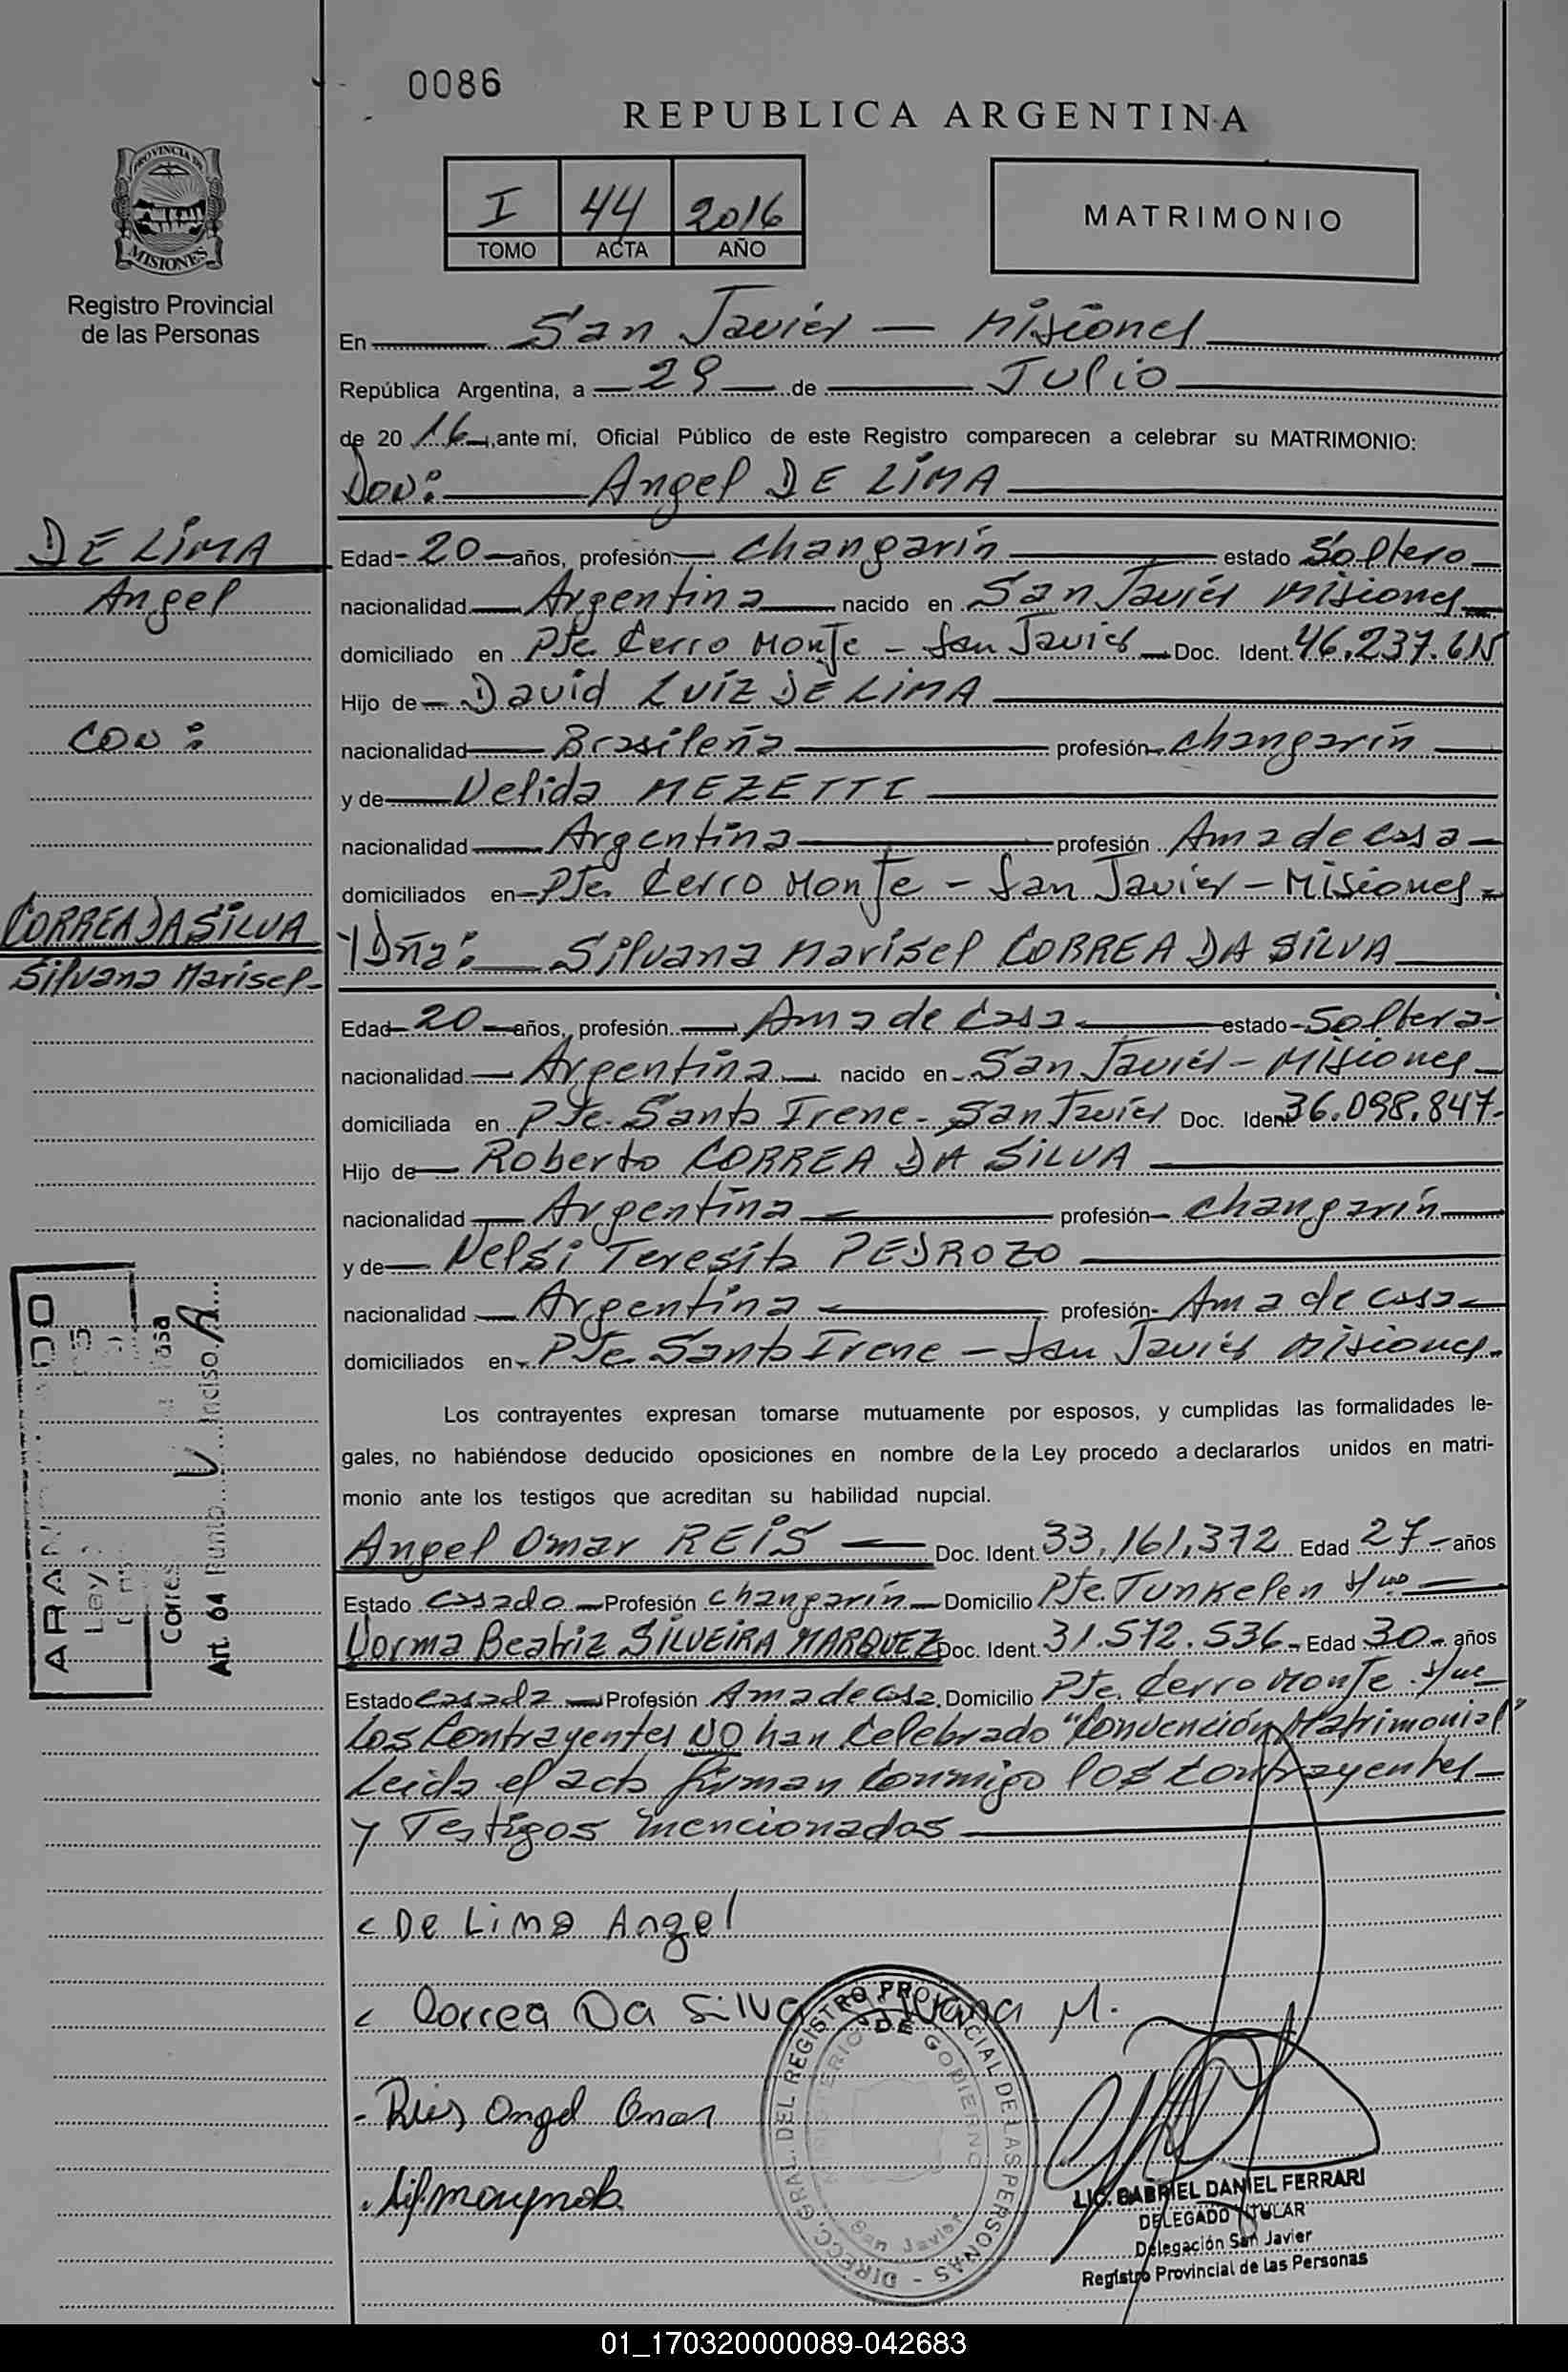 0086
REPUBLICA ARGENTINA
I 44 2016
TOMO ACTA AÑO
MATRIMONIO
PROVINCIA DE
MISIONES
Registro Provincial
de las Personas
En San Javier — Misiones
República Argentina, a 29 de Julio
de 20 16, ante mí, Oficial Público de este Registro comparecen a celebrar su MATRIMONIO:
Don: Angel DE LIMA
DE LIMA
Angel
Edad 20 años, profesión changarín estado Soltero
nacionalidad Argentina nacido en San Javier Misiones
domiciliado en Pje. Cerro Monje - San Javier Doc. Ident. 46.237.615
Hijo de David LUIZ DE LIMA
con:
nacionalidad Brasileña profesión changarín
y de Nelida MEZETTI
nacionalidad Argentina profesión Ama de casa
domiciliados en Pje. Cerro Monje - San Javier - Misiones
CORREA DA SILVA
Silvana Marisel
Y Dña: Silvana Marisel CORREA DA SILVA
Edad 20 años, profesión Ama de Casa estado Soltera
nacionalidad Argentina nacido en San Javier - Misiones
domiciliada en Pje. Santa Irene - San Javier Doc. Ident. 36.098.847
Hijo de Roberto CORREA DA SILVA
nacionalidad Argentina profesión changarín
y de Nelsi Teresita PEDROZO
nacionalidad Argentina profesión Ama de casa
domiciliados en Pje. Santa Irene - San Javier Misiones.
Los contrayentes expresan tomarse mutuamente por esposos, y cumplidas las formalidades le-
gales, no habiéndose deducido oposiciones en nombre de la Ley procedo a declararlos unidos en matri-
monio ante los testigos que acreditan su habilidad nupcial.
Angel Omar REIS Doc. Ident. 33.161.372 Edad 27 años
Estado Casado Profesión Changarín Domicilio Pje. Tunkelen
Norma Beatriz SILVEIRA MARQUEZ Doc. Ident. 31.572.536 Edad 30 años
Estado Casada Profesión Ama de Casa Domicilio Pje. Cerro Monje
Los Contrayentes NO han Celebrado "Convención Matrimonial"
Leida el acta firman Conmigo los Contrayentes
y Testigos mencionados
Ley
Art. 64 Punto V Inciso A
De Lima Angel
Correa Da Silva Silvana M.
Reis Angel Omar
DIRECC. GRAL. DEL REGISTRO PROVINCIAL DE LAS PERSONAS
MINISTERIO DE GOBIERNO
San Javier
LIC. GABRIEL DANIEL FERRARI
DELEGADO TITULAR
Delegación San Javier
Registro Provincial de las Personas
01_170320000089-042683